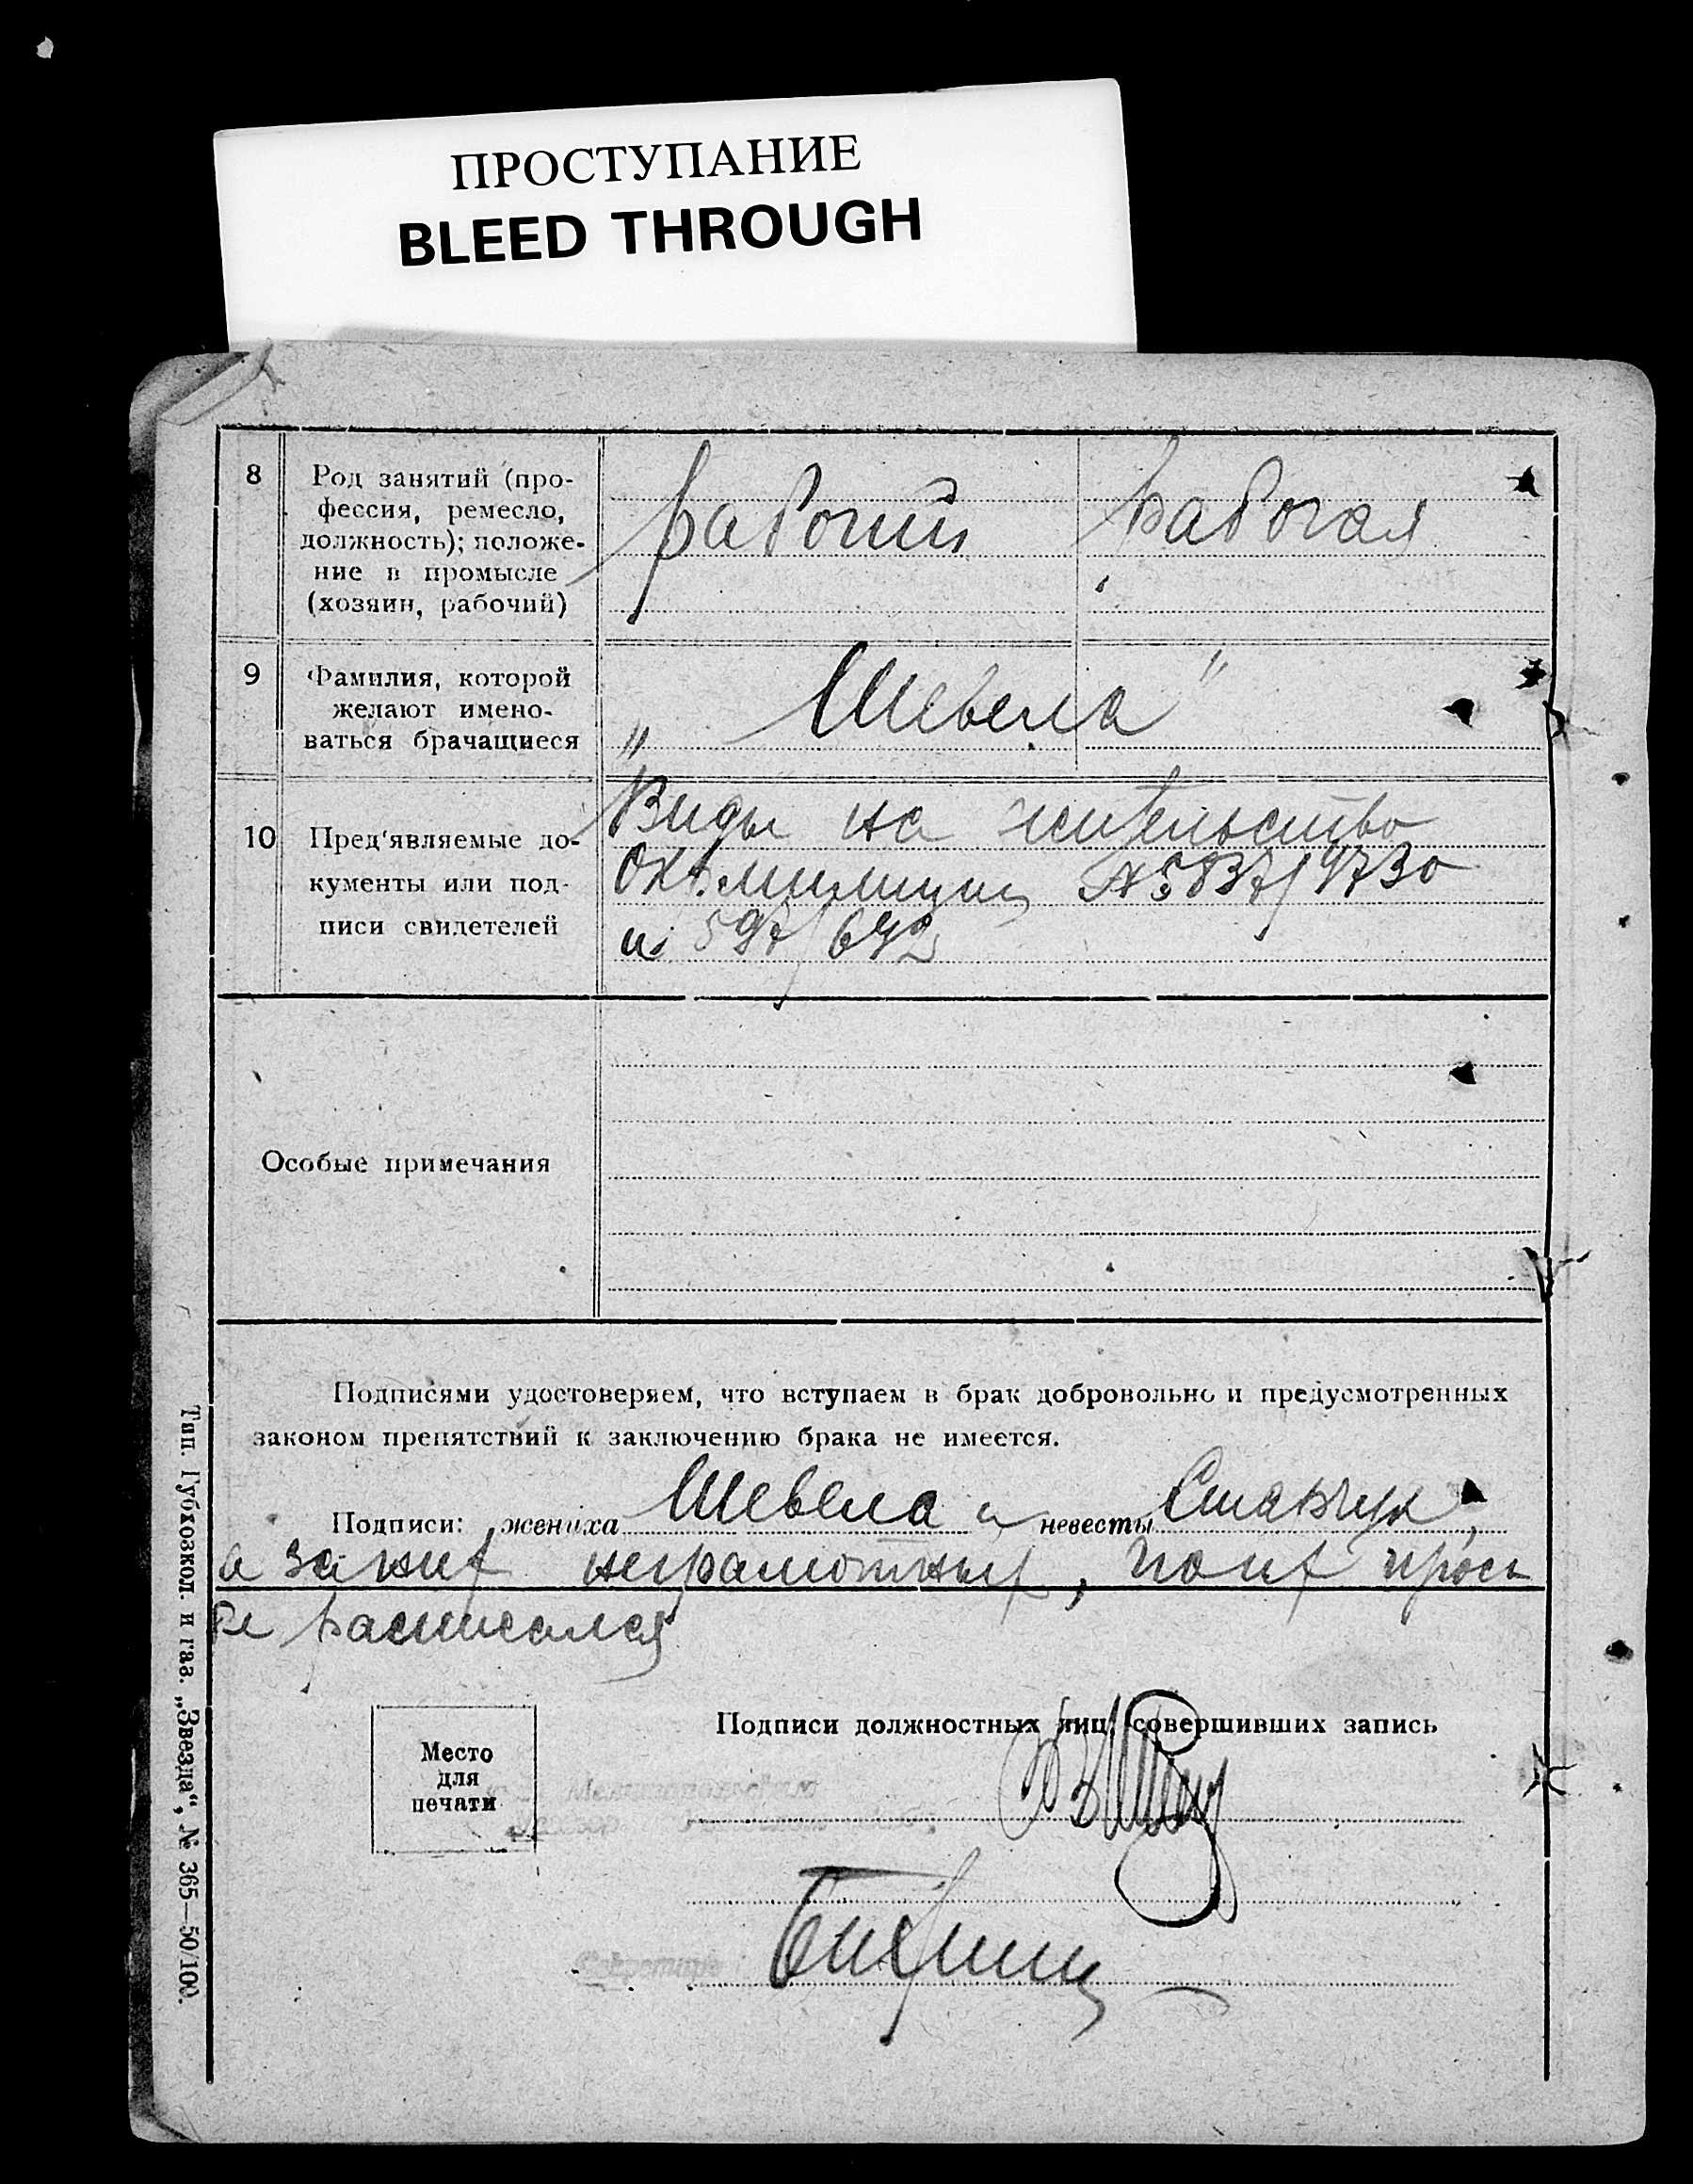 ПРОСТУПАНИЕ
BLEED THROUGH
8
Род занятий (про-
фессия, ремесло,
должность); положе-
ние в промысле
(хозяин, рабочий)
рабочий
рабочая
9
Фамилия, которой
желают имено-
ваться брачащиеся
„ Шевела "
10
Пред'являемые до-
кументы или под-
писи свидетелей
Виды на жительство
Окр.милиции № 5837/4730
и 597/642
Особые примечания
Подписями удостоверяем, что вступаем в брак добровольно и предусмотренных
законом препятствий к заключению брака не имеется.
Подписи: жениха Шевела и невесты
а за них неграмотных, по их прось
бе расписался
Место
для
печати
Подписи должностных лиц, совершивших запись
Секретарь
Тип. Губхозкол. и газ. „Звезда", № 365—50/100.